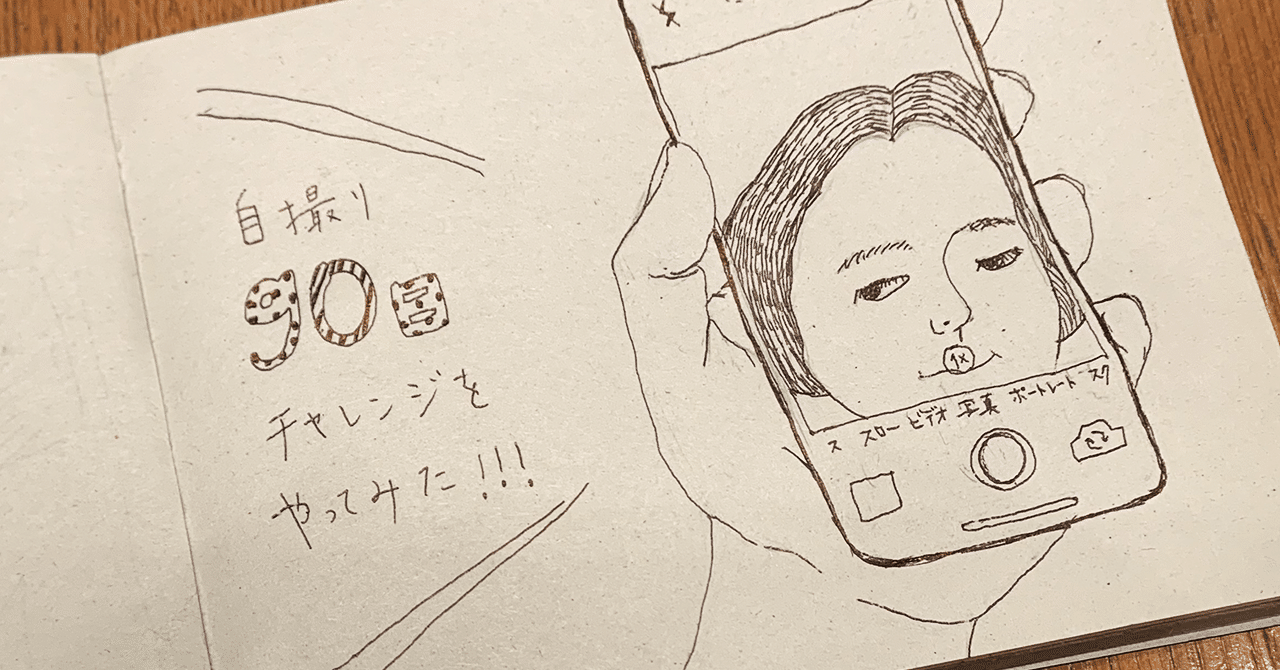 自撮り
90日
チャレンジを
やってみた!!!
1×
ス スロー ビデオ 写真 ポートレート スク